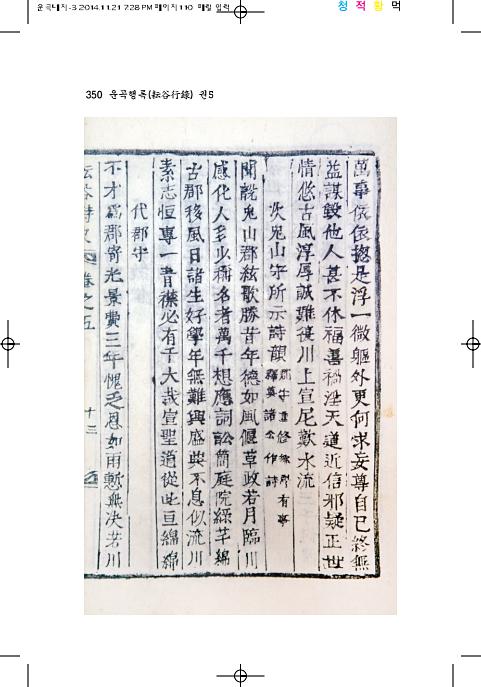 운곡내지-3 2014.11.21 7:28 PM 페이지110 매킬 입력
청 적 황 먹
350 운곡행록(耘谷行錄) 권5
萬事依依摠是浮一微軀外更何求妄尊自已終無
益謀毀他人甚不休福善禍淫天道近信邪疑正世
情悠古風淳厚誠難復川上宣尼歎水流
次兎山守所示詩韻
聞說兎山郡絃歌勝昔年德如風偃草政若月臨川
感化人多少稱名者萬千想應詞訟簡庭院綠芊綿
古郡移風日諸生好學年無難興盛典不息似流川
素志恒專一靑襟必有千大哉宣聖道從此亘綿綿
代郡守
不才爲郡寄光景費三年愧乏恩如雨慙無決若川
卷之五
十三